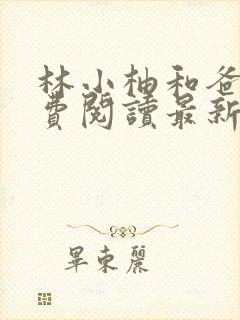 林小柚和爸
費閱讀最新
畢東麗